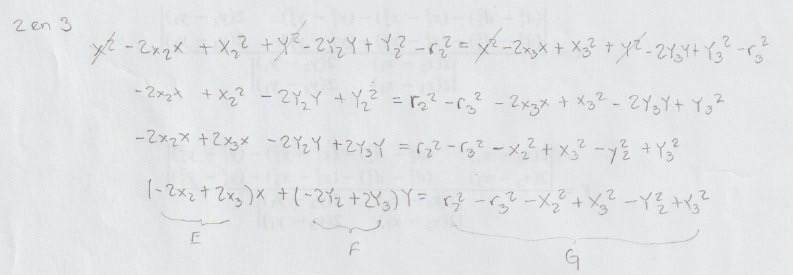 2 en 3
x² - 2x₂x + x₂² + y² - 2y₂y + y₂² - r₂² = x² - 2x₃x + x₃² + y² - 2y₃y + y₃² - r₃²
-2x₂x + x₂² - 2y₂y + y₂² = r₂² - r₃² - 2x₃x + x₃² - 2y₃y + y₃²
-2x₂x + 2x₃x - 2y₂y + 2y₃y = r₂² - r₃² - x₂² + x₃² - y₂² + y₃²
(-2x₂ + 2x₃)x + (-2y₂ + 2y₃)y = r₂² - r₃² - x₂² + x₃² - y₂² + y₃²
E F G